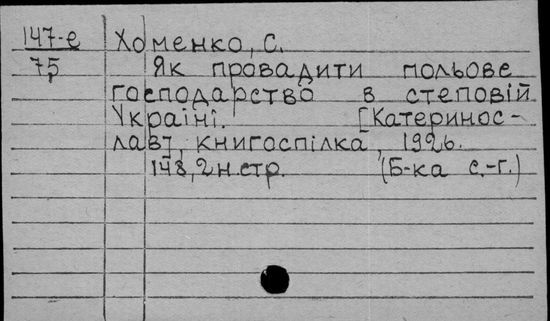 147-е Хоменко, С.
75 Як провадити польове
господарство в степовій
Україні. [Катеринос-
лав], книгоспілка, 1926.
148, 2 н. стр. (Б-ка с.-г.)